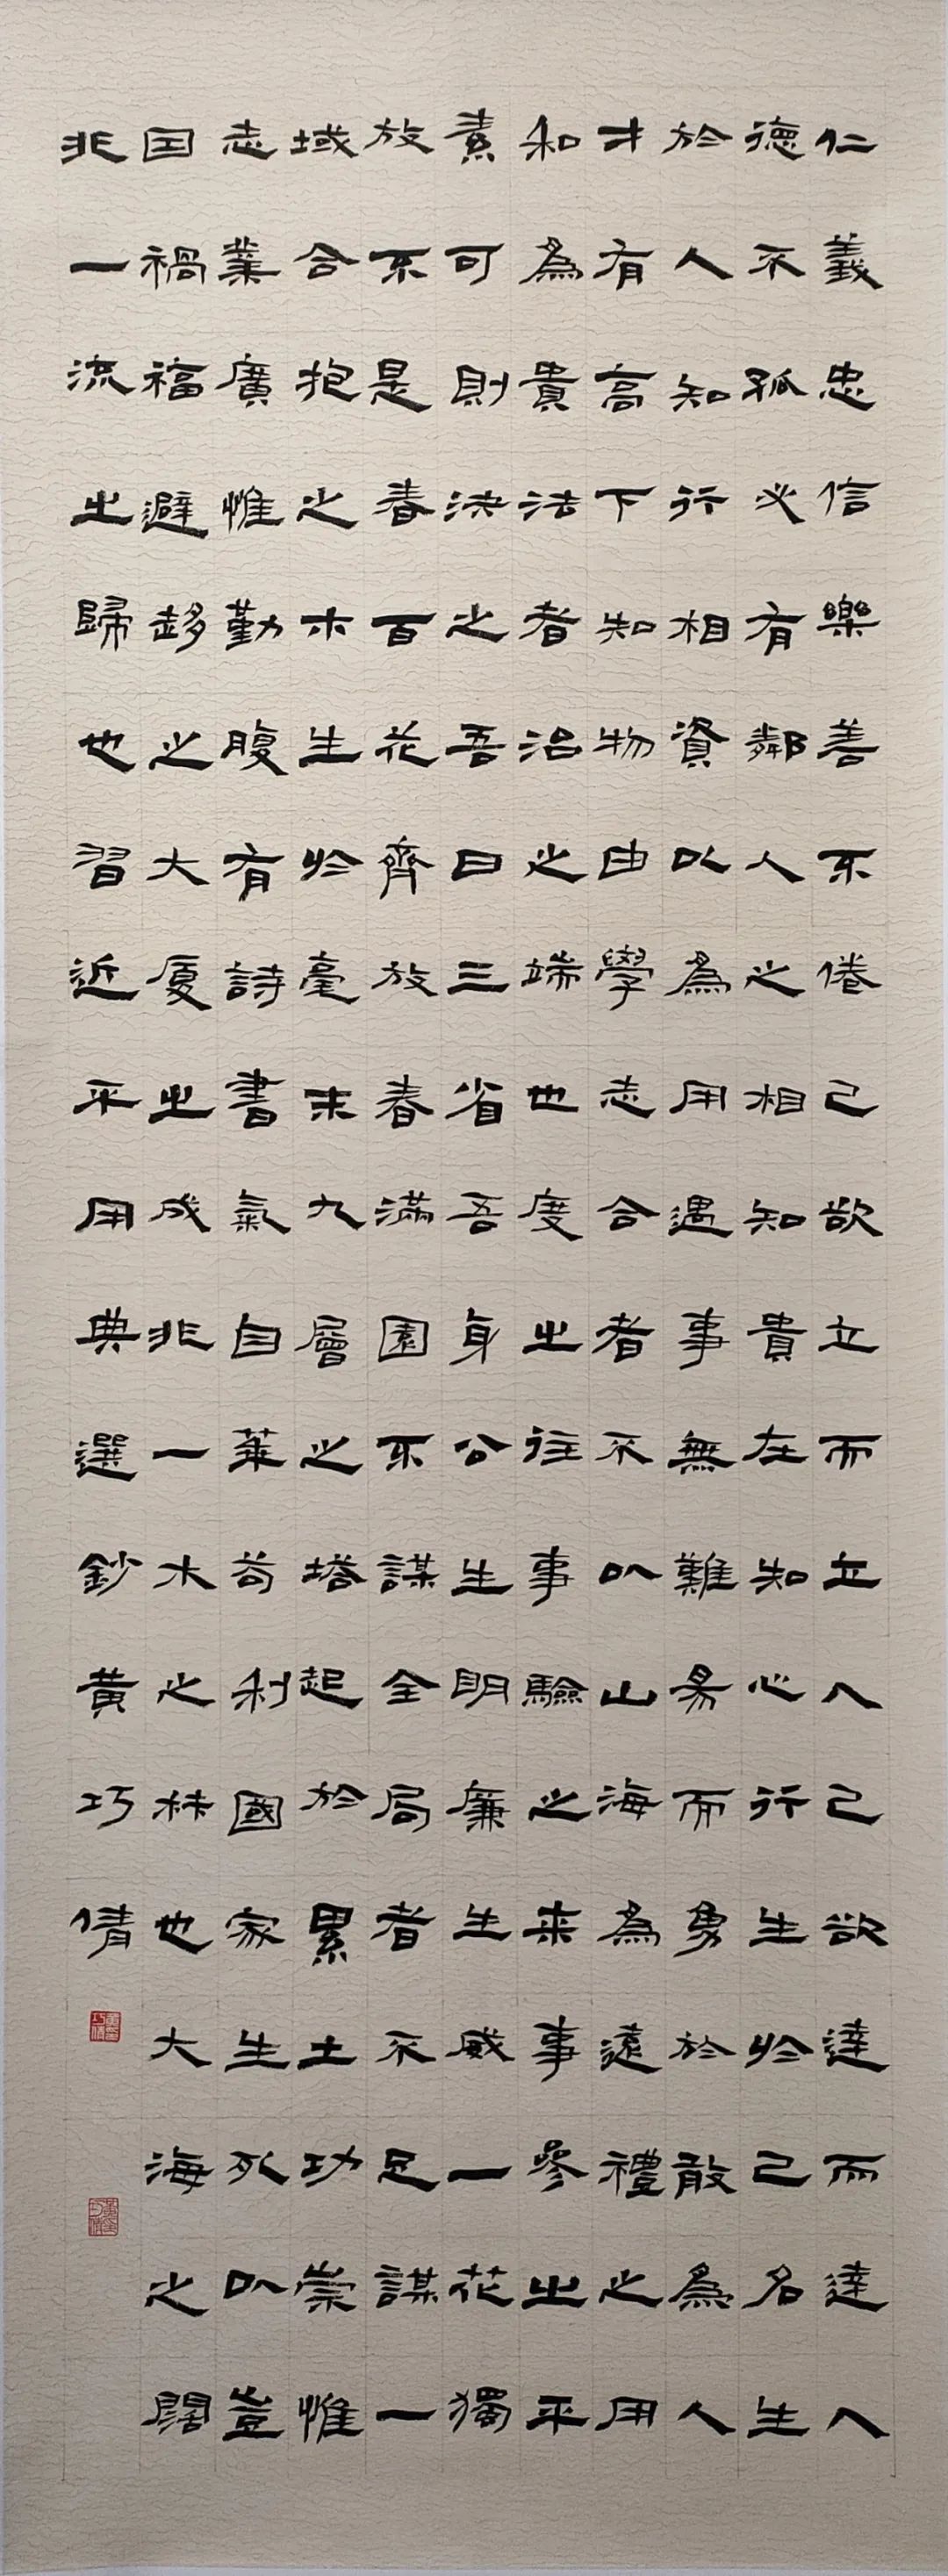 仁義忠信樂善不倦己欲立而立人己欲達而達人
德不孤必有鄰人之相知貴在知心行生於己名生
於人知行相資以為用遇事無難易而勇於敢為人
才有高下知物由學志合者不以山海為遠禮之用
和為貴法者治之端也度之往事驗之来事參之平
素可則決之吾日三省吾身公生明廉生威一花獨
放不是春百花齊放春滿園不謀全局者不足謀一
域合抱之木生於毫末九層之塔起於累土功崇惟
志業廣惟勤腹有詩書氣自華苟利國家生死以豈
因禍福避趍之大厦之成非一木之材也大海之闊
非一流之歸也習近平用典選鈔黄巧倩